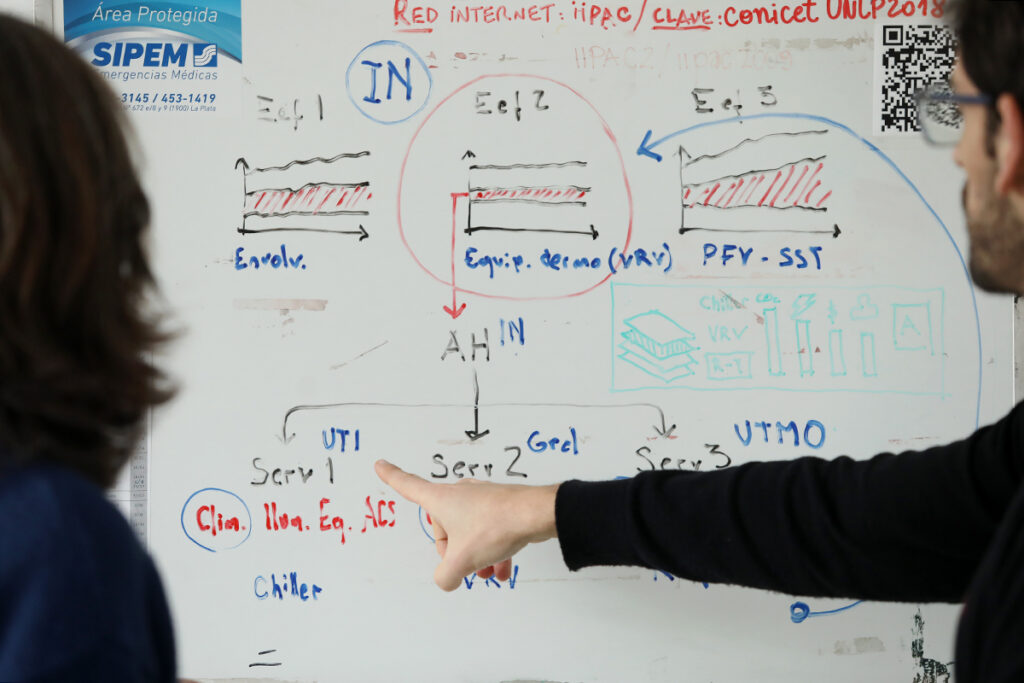 Área Protegida
SIPEM
Emergencias Médicas
-3145 / 453-1419
Nº 672 e/8 y 9 (1900) La Plata
RED INTERNET: iiPAC / CLAVE: conicet UNLP2018
IIPAC2 / iipac2009
IN
Eef 1
Eef 2
Eef 3
Envolv.
Equip. dermo (VRV)
PFV - SST
Chiller
VRV
R-T
$
A.
AH IN
UTI
Gral
UTMO
Serv 1
Serv 2
Serv 3
Clim. Ilum. Eq. ACS
Chiller
VRV